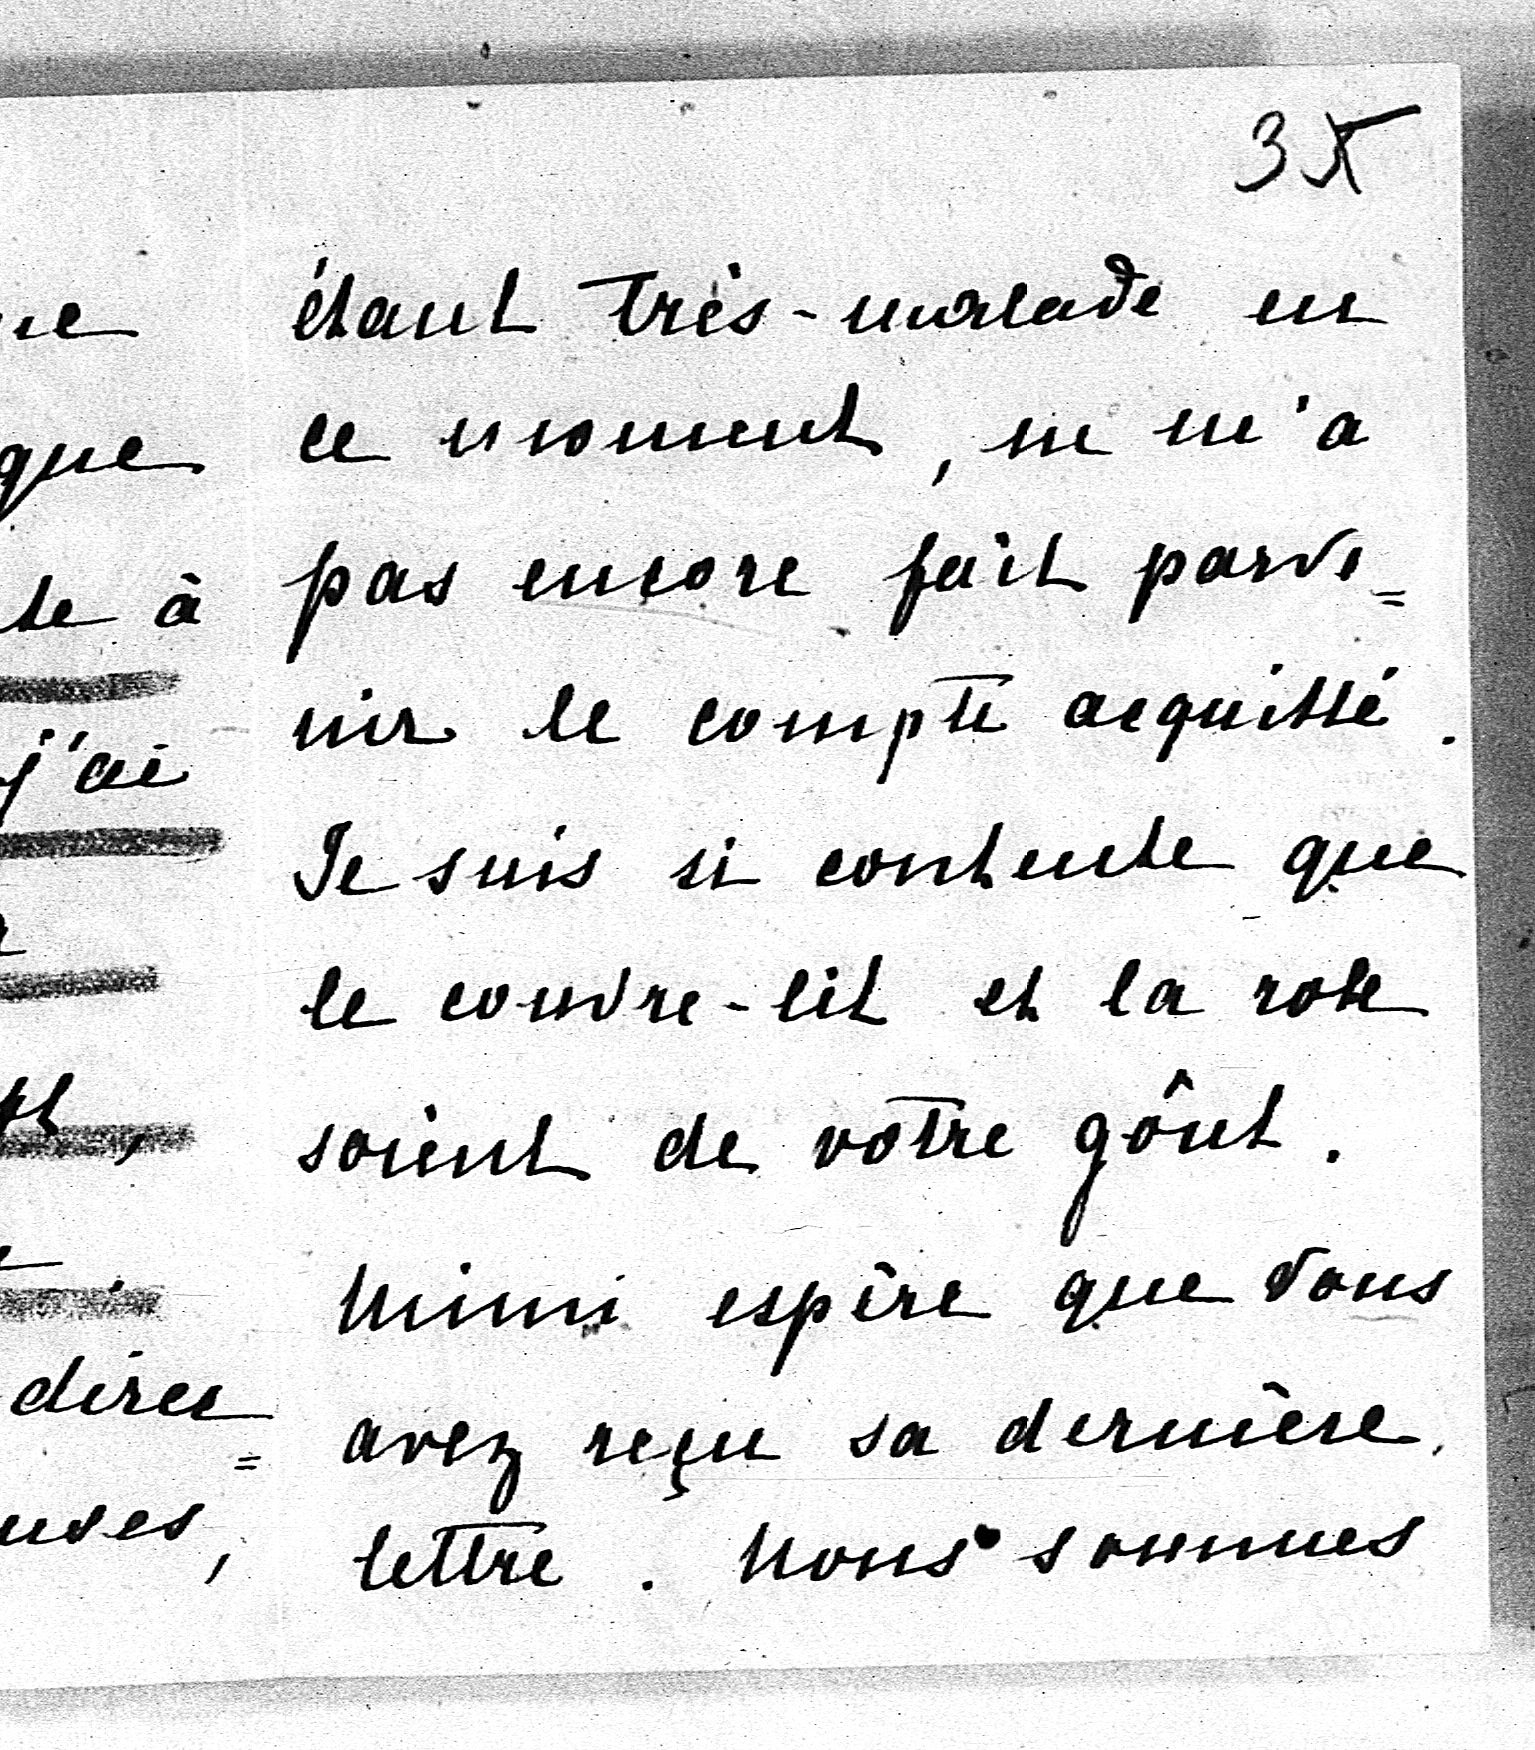 35
étant très-malade en
ce moment, ne m'a
pas encore fait parve=
nir le compte acquitté.
Je suis si contente que
le couvre-lit et la robe
soient de votre goût.
Mimi espère que vous
avez reçu sa dernière
lettre. Nous sommes
que
te à
j'ai
direc=